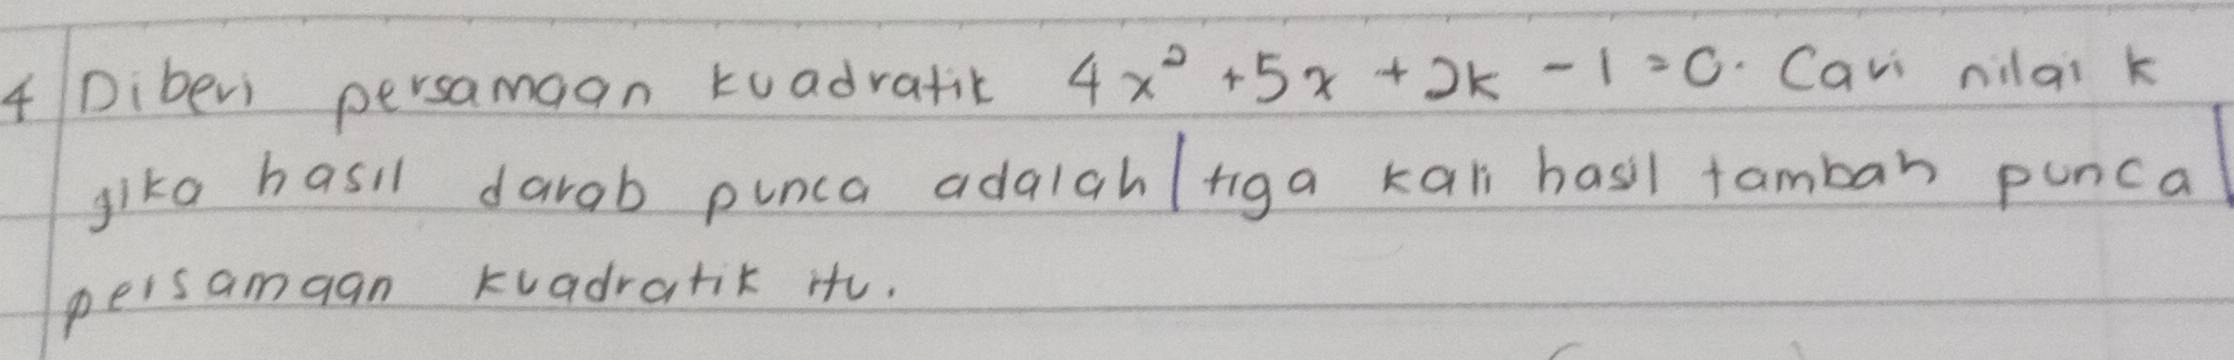 4 Diberi persamaan kuadratik 4x² + 5x + 2k - 1 = 0. Cari nilai k
jika hasil darab punca adalah | tiga kali hasil tambah punca |
persamaan kuadratik itu.